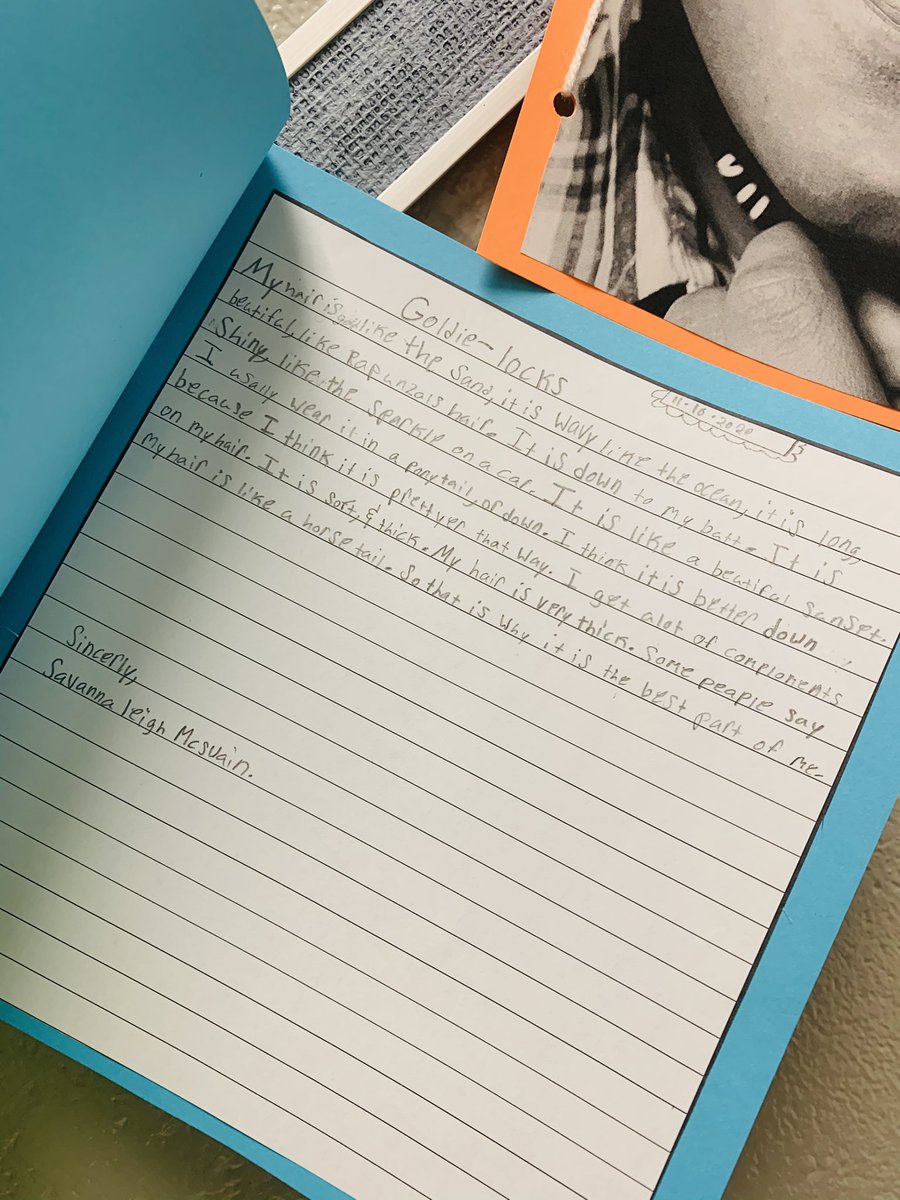 Goldie-locks
11-16-2020
My hair is like the sand, it is wavy like the ocean, it is long,
beutiful, like Rapunzals hair. It is down to my butt. It is
Shiny, like the sparkle on a car. It is like a beatiful sunset.
I usaly wear it in a ponytail, or down. I think it is better down
because I think it is prettyer that way. I get alot of complements
on my hair. It is sort, & thick. My hair is very thick. Some peaple say
my hair is like a horse tail. So that is why it is the best part of me.
Sincerly,
Savanna leigh Mcswain.